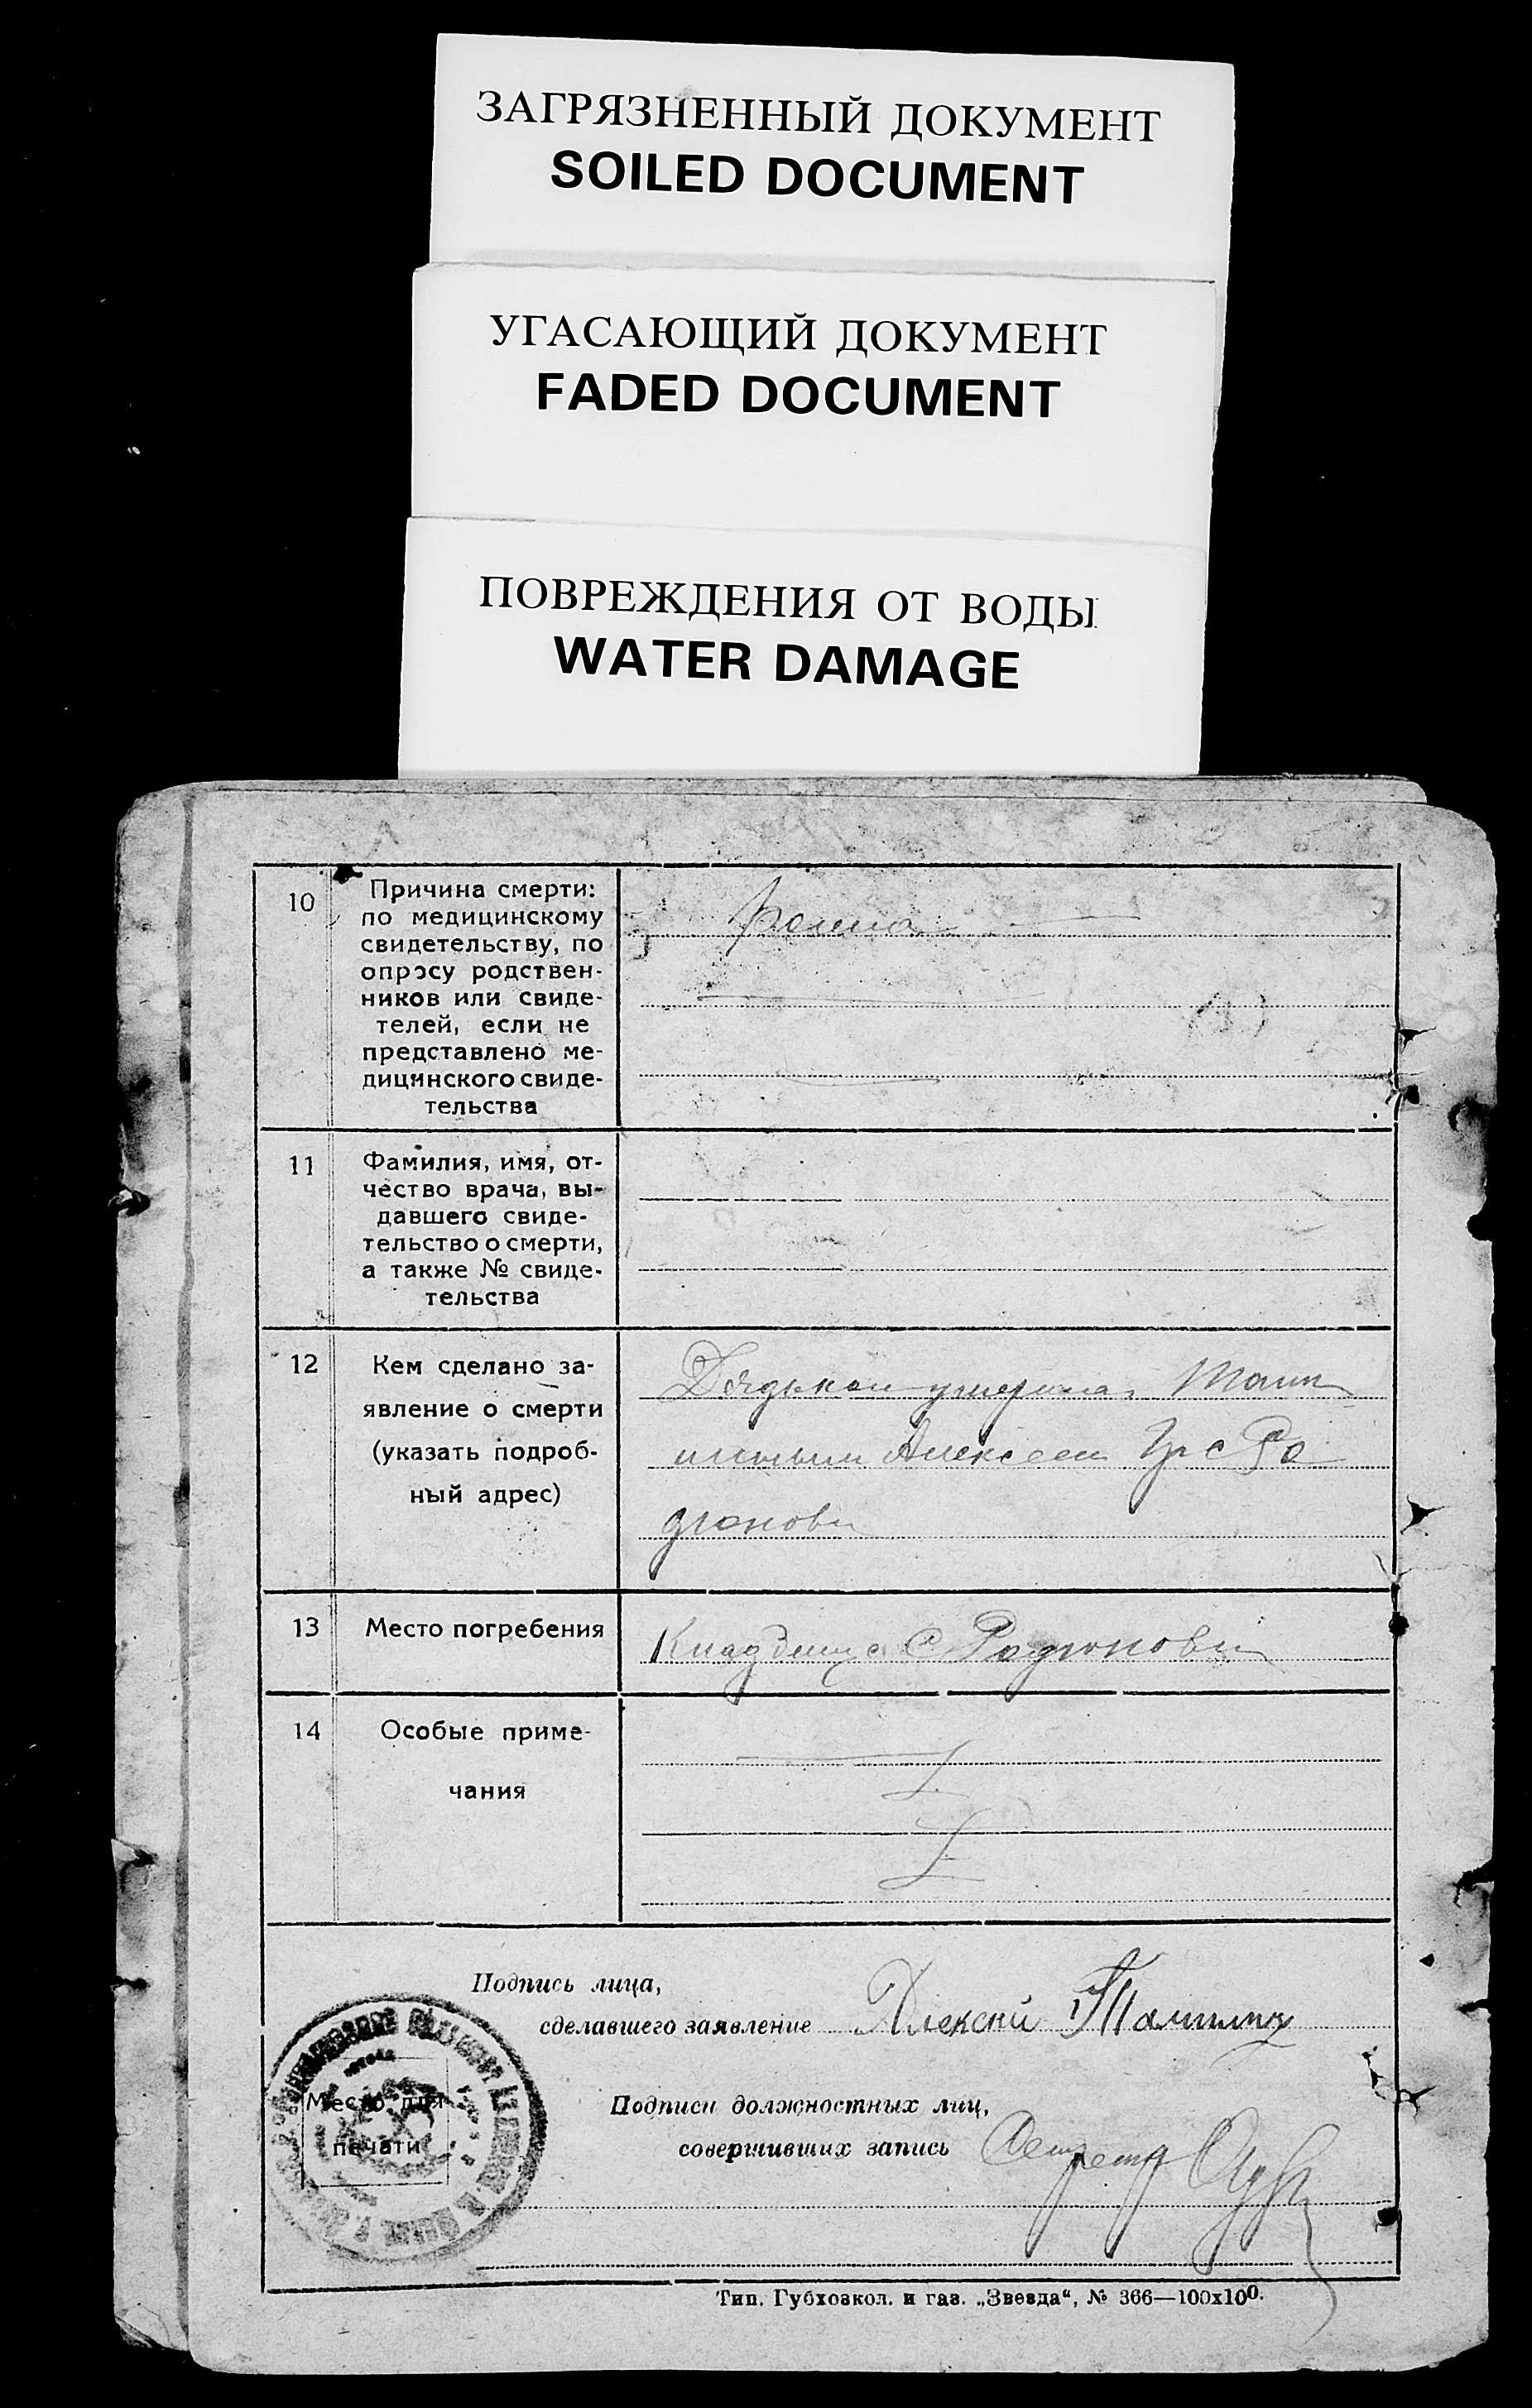 ЗАГРЯЗНЕННЫЙ ДОКУМЕНТ
SOILED DOCUMENT
УГАСАЮЩИЙ ДОКУМЕНТ
FADED DOCUMENT
ПОВРЕЖДЕНИЯ ОТ ВОДЫ
WATER DAMAGE
10
Причина смерти:
по медицинскому
свидетельству, по
опросу родствен-
ников или свиде-
телей, если не
представлено ме-
дицинского свиде-
тельства
11
Фамилия, имя, от-
чество врача, вы-
давшего свиде-
тельство о смерти,
а также № свиде-
тельства
12
Кем сделано за-
явление о смерти
(указать подроб-
ный адрес)
Алексеем
13
Место погребения
14
Особые приме-
чания
Подпись лица,
сделавшего заявление
Место для
печати
Подписи должностных лиц,
совершивших запись
Тип. Губхозкол. и газ. „Звезда“, № 366—100х100.